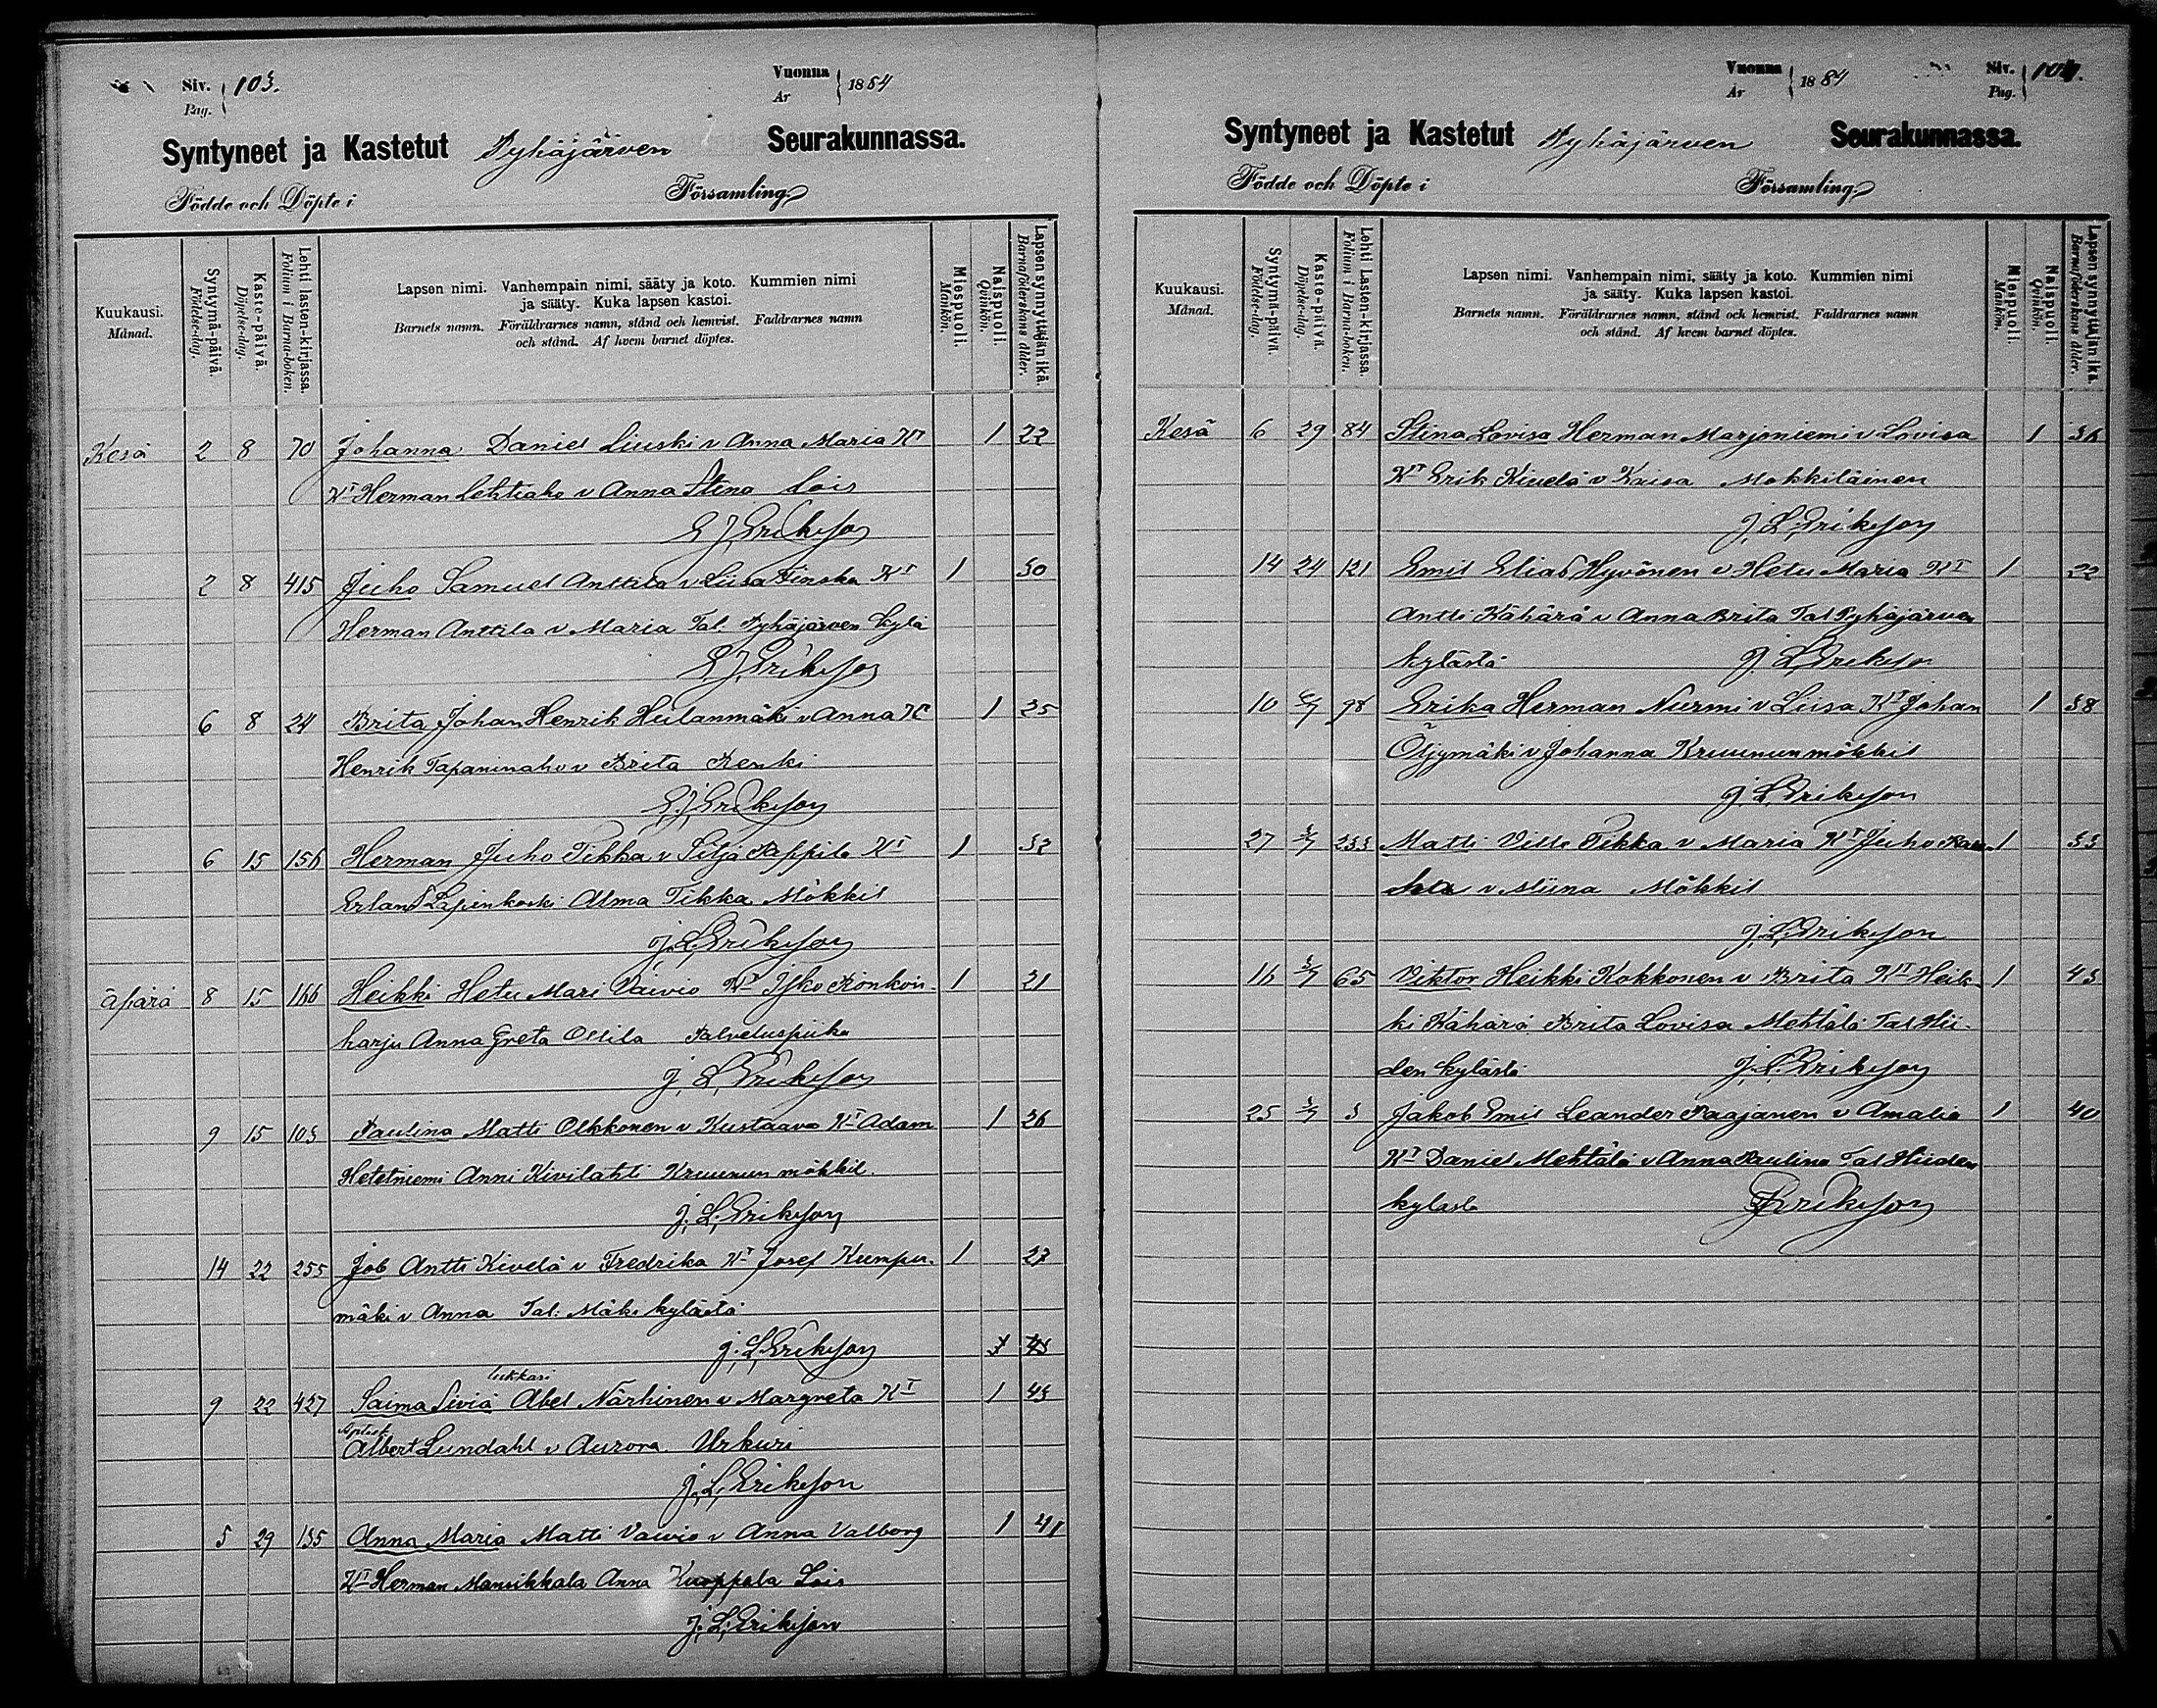 Siv. Pag. 103.
Vuonna År 1884
Syntyneet ja Kastetut Pyhäjärven Seurakunnassa.
Födde och Döpte i Församling.
Kuukausi. Månad.
Syntymä-päivä. Födelse-dag.
Kaste-päivä. Döpelse-dag.
Lehti lasten-kirjassa. Folium i Barna-boken.
Lapsen nimi. Vanhempain nimi, sääty ja koto. Kummien nimi
ja sääty. Kuka lapsen kastoi.
Barnets namn. Föräldrarnes namn, stånd och hemvist. Faddrarnes namn
och stånd. Af hvem barnet döptes.
Miespuoli. Mankön.
Naispuoli. Qvinkön.
Lapsen synnyttäjän ikä. Barnaföderskans ålder.
Kesä 2 8 70 Johanna Daniel Liuski v Anna Maria Kt 1 22
Kt Herman Lehtiaho v Anna Stina Lois
E J Erikson
2 8 415 Juho Samuel Anttila v Liisa Kt 1 30
Herman Anttila v Maria Tal. Pyhäjärven kylä
E J Erikson
6 8 24 Brita Johan Henrik Heilanmäki v Anna Kt 1 25
Henrik Tapaninaho v Brita Renki
E. J. Erikson
6 15 156 Herman Juho Tikka v Silja Pappila Kt 1 32
Erland Lapinkoski Alma Tikka Mökkil
J. L. Erikson
äpärä 8 15 166 Heikki Hetu Mari Vaivio Kt Isko Könkön- 1 21
harju Anna Greta Ollila Palveluspiika
J. L. Erikson
9 15 103 Paulina Matti Olkkonen v Kustaava Kt Adam 1 26
Hetetniemi Anni Kivilahti Kruunun mökkil.
J. L. Erikson
14 22 255 Job Antti Kivelä v Fredrika Kt Josef Kumpu- 1 27
mäki v Anna Tal: Mäki kylästä
J. L. Erikson 1 43
lukkari
9 22 427 Saima Siviä Abel Närhinen v Margreta Kt 1 43
Albert Lundahl v Aurora Urkuri
J. L. Erikson
5 29 135 Anna Maria Matti Vaivio v Anna Valborg 1 41
Kt Herman Mansikkala Anna Kuoppala Lois
J. L. Erikson
Vuonna År 1884
Siv. Pag. 104.
Syntyneet ja Kastetut Pyhäjärven Seurakunnassa.
Födde och Döpte i Församling.
Kuukausi. Månad.
Syntymä-päivä. Födelse-dag.
Kaste-päivä. Döpelse-dag.
Lehti Lasten-kirjassa. Folium i Barna-boken.
Lapsen nimi. Vanhempain nimi, sääty ja koto. Kummien nimi
ja sääty. Kuka lapsen kastoi.
Barnets namn. Föräldrarnes namn, stånd och hemvist. Faddrarnes namn
och stånd. Af hvem barnet döptes.
Miespuoli. Mankön.
Naispuoli. Qvinkön.
Lapsen synnyttäjän ikä. Barnaföderskans ålder.
Kesä 6 29 84 Stina Lovisa Herman Marjoniemi v Lovisa 1 36
Kt Erik Kivelä v Kaisa Mökkiläinen
J. L. Erikson
14 24 121 Emil Elias Hyvönen v Hetu Maria Kt 1 22
Antti Kähärä v Anna Brita Tal Pyhäjärven
kylästä J. L. Erikson
10 6/7 98 Erika Herman Nurmi v Liisa Kt Johan 1 38
Öljymäki v Johanna Kruunun mökkil
J. L. Erikson
27 3/7 233 Matti Ville Tikka v Maria Kt Juho 1 33
v Miina Mökkil
J. L. Erikson
16 3/7 65 Viktor Heikki Kokkonen v Brita Kt Heik- 1 43
ki Kähärä Brita Lovisa Mehtälä Tal Hii-
den kylästä J. L. Erikson
25 3/7 3 Jakob Emil Leander Paajanen v Amalia 1 40
Kt Daniel Mehtälä v Anna Paulina Tal Hiiden
kylästä Erikson